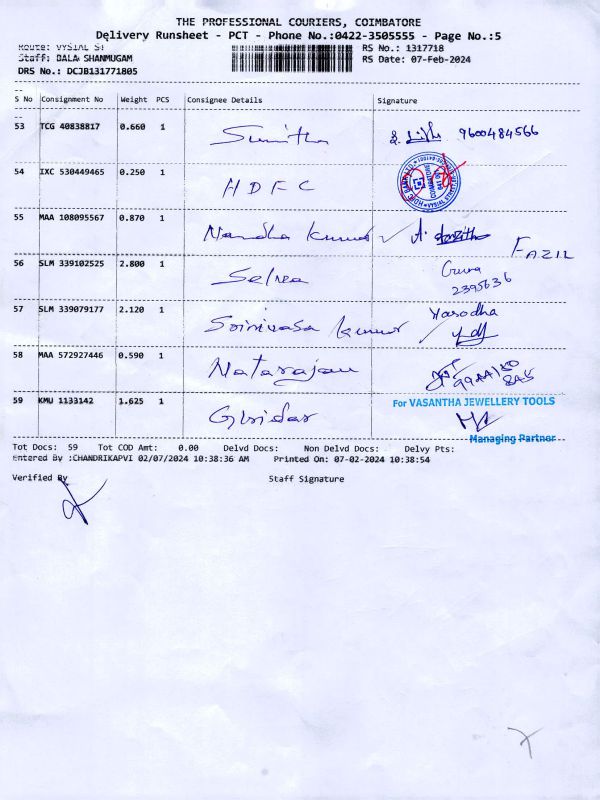 THE PROFESSIONAL COURIERS, COIMBATORE
Delivery Runsheet - PCT - Phone No.:0422-3505555 - Page No.:5
Route: VYSIAL ST
RS No.: 1317718
Staff: BALA SHANMUGAM
RS Date: 07-Feb-2024
DRS No.: DCJB131771805
S No Consignment No Weight PCS Consignee Details Signature
53 TCG 40838817 0.660 1 Sunitha 9600484566
54 IXC 530449465 0.250 1 HDFC
55 MAA 108095567 0.870 1 Nandha Kumar A.
FAZIL
56 SLM 339102525 2.800 1 Selva Guna
2395636
57 SLM 339079177 2.120 1 Srinivasa Kumar Yasodha
58 MAA 572927446 0.590 1 Natarajan
59 KMU 1133142 1.625 1 Giridar For VASANTHA JEWELLERY TOOLS
Managing Partner
Tot Docs: 59 Tot COD Amt: 0.00 Delvd Docs: Non Delvd Docs: Delvy Pts:
Entered By :CHANDRIKAPVI 02/07/2024 10:38:36 AM Printed On: 07-02-2024 10:38:54
Verified By Staff Signature